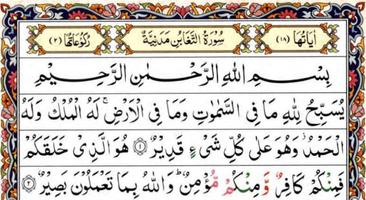 اٰيَاتُهَا (١٨) سُوْرَةُ التَّغَابُنِ مَدَنِيَّةٌ رُكُوْعَاتُهَا (٢)
بِسْمِ اللّٰهِ الرَّحْمٰنِ الرَّحِيْمِ
يُسَبِّحُ لِلّٰهِ مَا فِى السَّمٰوٰتِ وَمَا فِى الْاَرْضِ ۚ لَهُ الْمُلْكُ وَلَهُ
الْحَمْدُ ۫ وَهُوَ عَلٰى كُلِّ شَىْءٍ قَدِيْرٌ ۝١ هُوَ الَّذِىْ خَلَقَكُمْ
فَمِنْكُمْ كَافِرٌ وَّمِنْكُمْ مُّؤْمِنٌ ؕ وَاللّٰهُ بِمَا تَعْمَلُوْنَ بَصِيْرٌ ۝٢